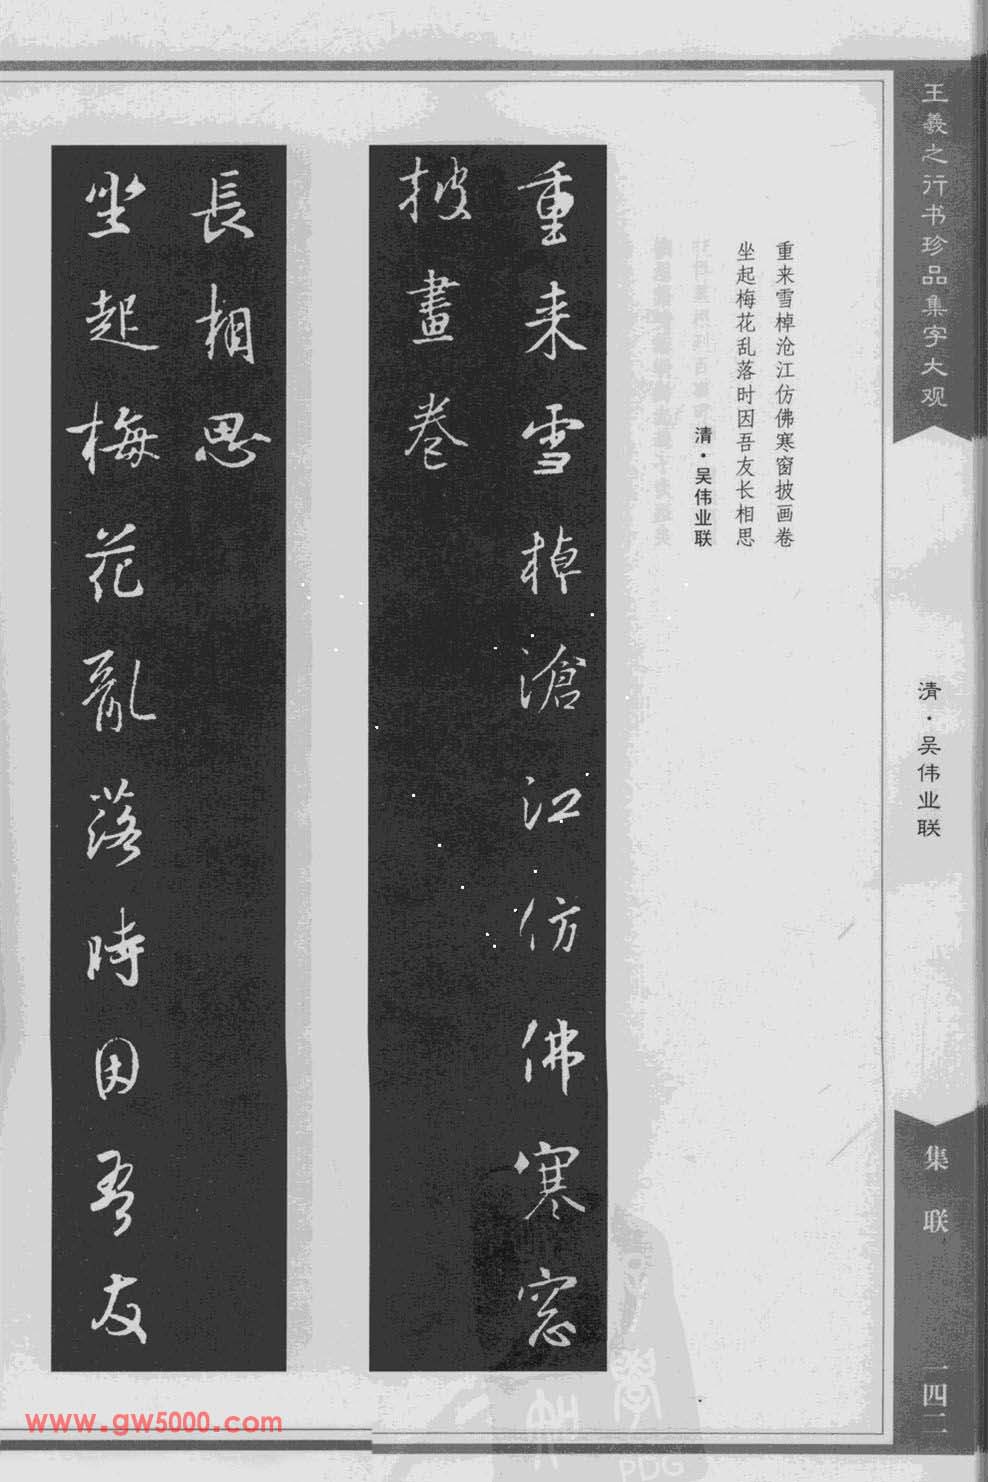 王羲之行书珍品集字大观
清·吴伟业联
集联
一四二
重来雪棹沧江仿佛寒窗披画卷
坐起梅花乱落时因吾友长相思
清·吴伟业联
重来雪棹滄江仿佛寒窓
披畫卷
坐起梅花亂落時因吾友
長相思
www.gw5000.com
PDG